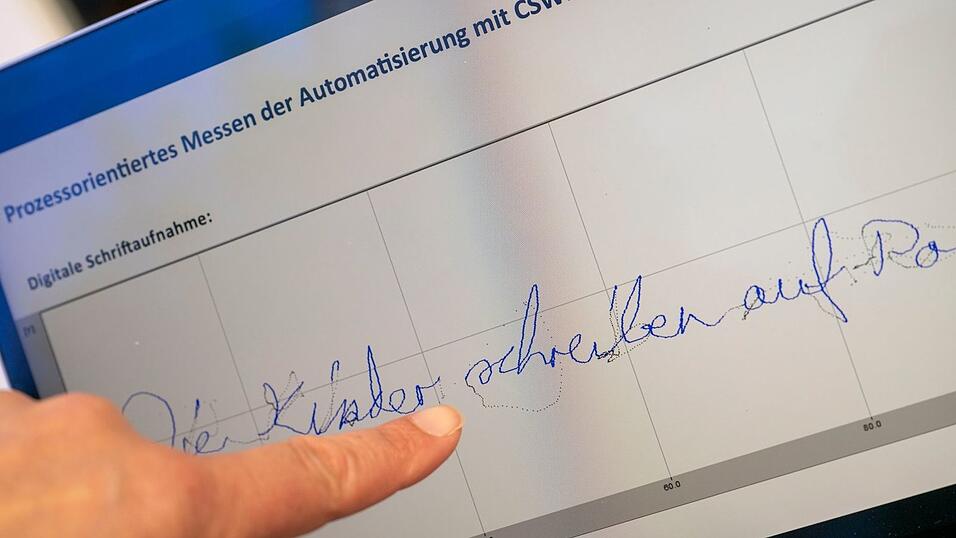 Prozessorientiertes Messen der Automatisierung mit
Digitale Schriftaufnahme:
[Y]
Die Kinder schreiben auf
60.0
80.0